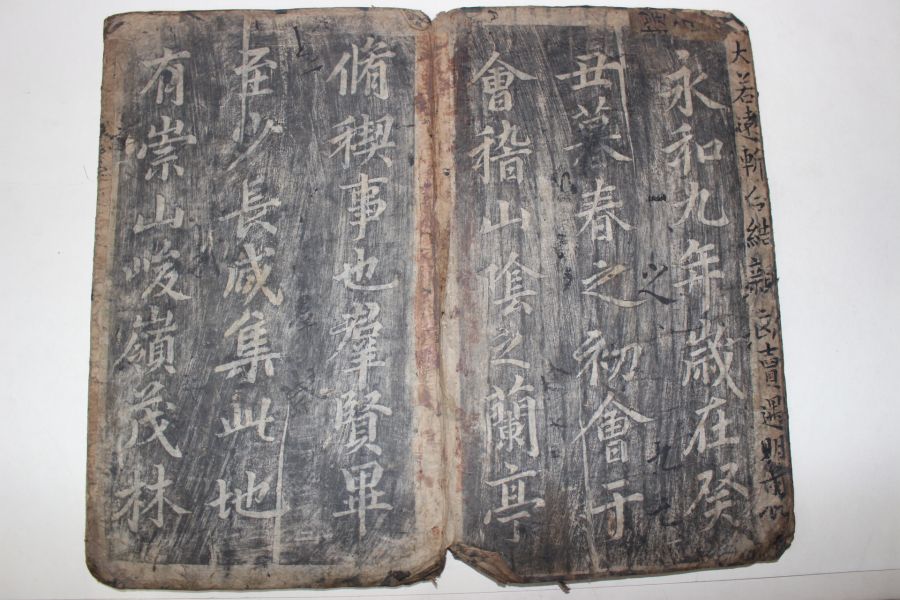 大若
永和九年歲在癸
丑暮春之初會于
會稽山陰之蘭亭
脩稧事也羣賢畢
至少長咸集此地
有崇山峻嶺茂林